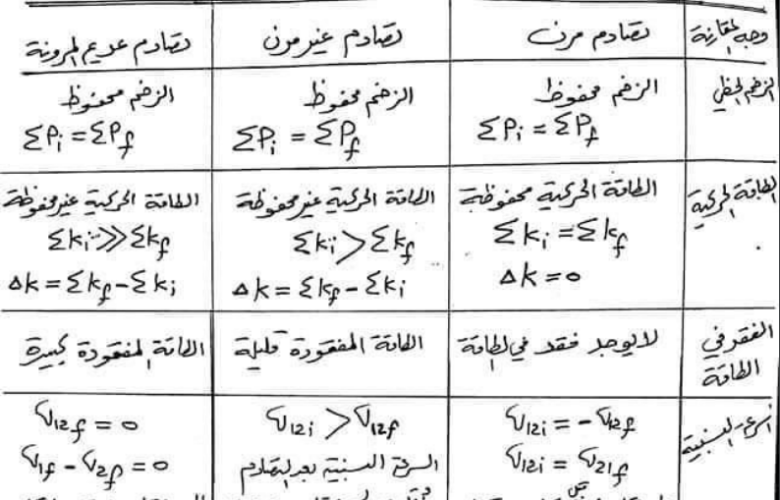 وجه المقارنة
تصادم مرن
تصادم غير مرن
تصادم عديم المرونة
الزخم الخطي
الزخم محفوظ
ΣPi = ΣPf
الزخم محفوظ
ΣPi = ΣPf
الزخم محفوظ
ΣPi = ΣPf
الطاقة الحركية
الطاقة الحركية محفوظة
Σki = Σkf
Δk = 0
الطاقة الحركية غير محفوظة
Σki > Σkf
Δk = Σkf - Σki
الطاقة الحركية غير محفوظة
Σki >> Σkf
Δk = Σkf - Σki
الفقد في
الطاقة
لا يوجد فقد في الطاقة
الطاقة المفقودة قليلة
الطاقة المفقودة كبيرة
السرعة النسبية
v12i = -v12f
v12i = v21f
v12i > v12f
السرعة النسبية بعد التصادم
v12f = 0
v1f - v2f = 0